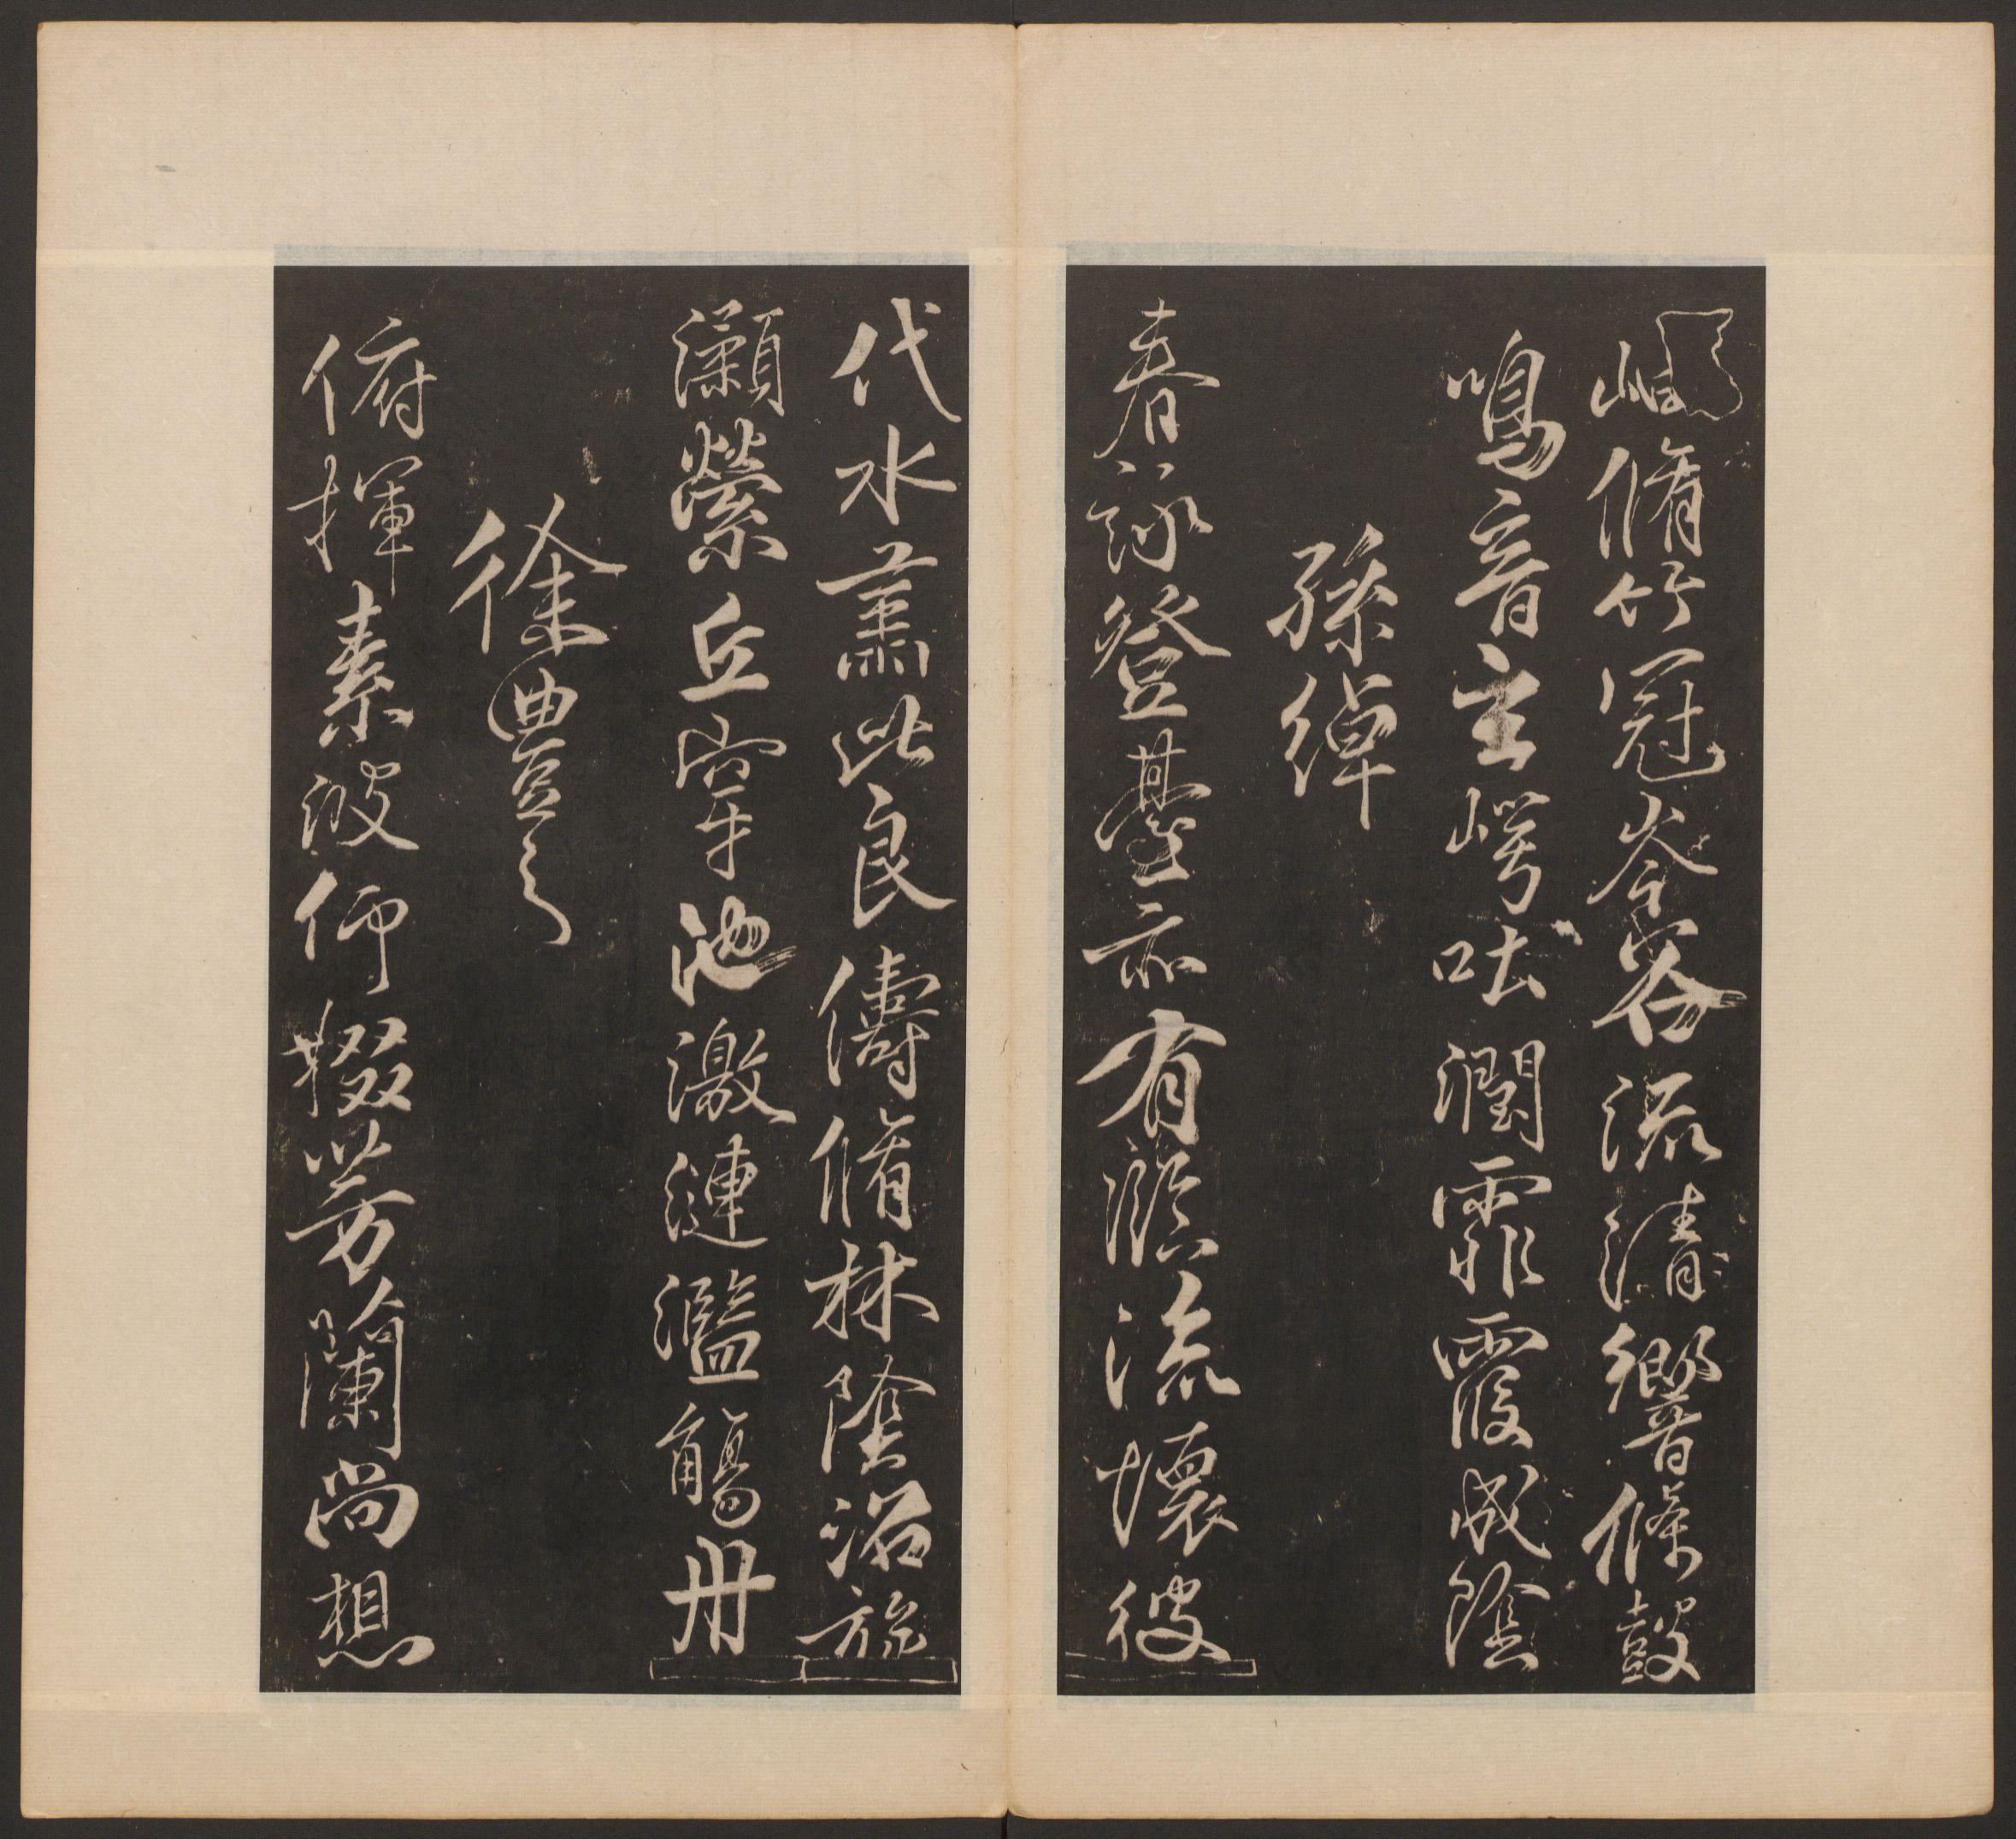 岫脩竹冠岑谷流清響條鼓
鳴音玄崿吐潤霏霞成陰
孫綽
春詠登臺亦有臨流懷彼
伐水肅此良儔脩林陰沼旋
瀨縈丘穿池激漣濫觴舟
徐豐之
俯揮素波仰掇芳蘭尚想